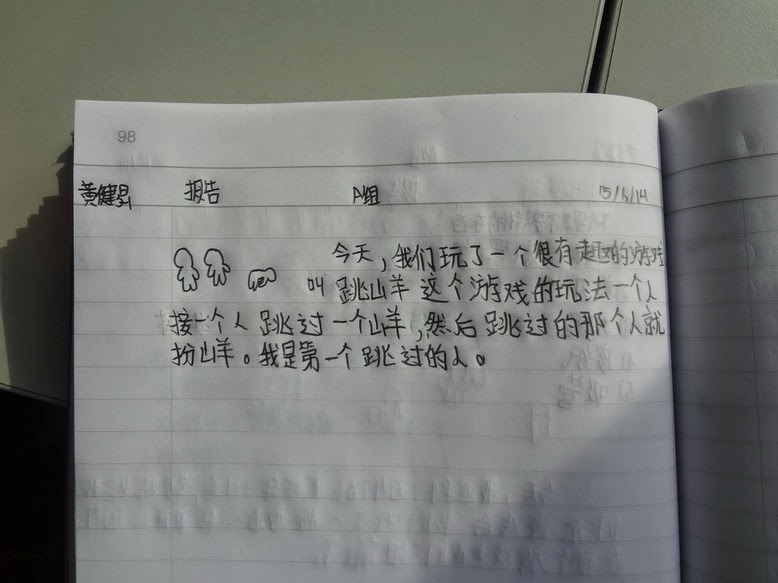 98
黄健昇 报告 A组 15/6/14
今天,我们玩了一个很有趣的游戏
叫 跳山羊 这个游戏的玩法一个人
接一个人 跳过一个山羊,然后 跳过的那个人就
扮山羊。我是第一个跳过的人。